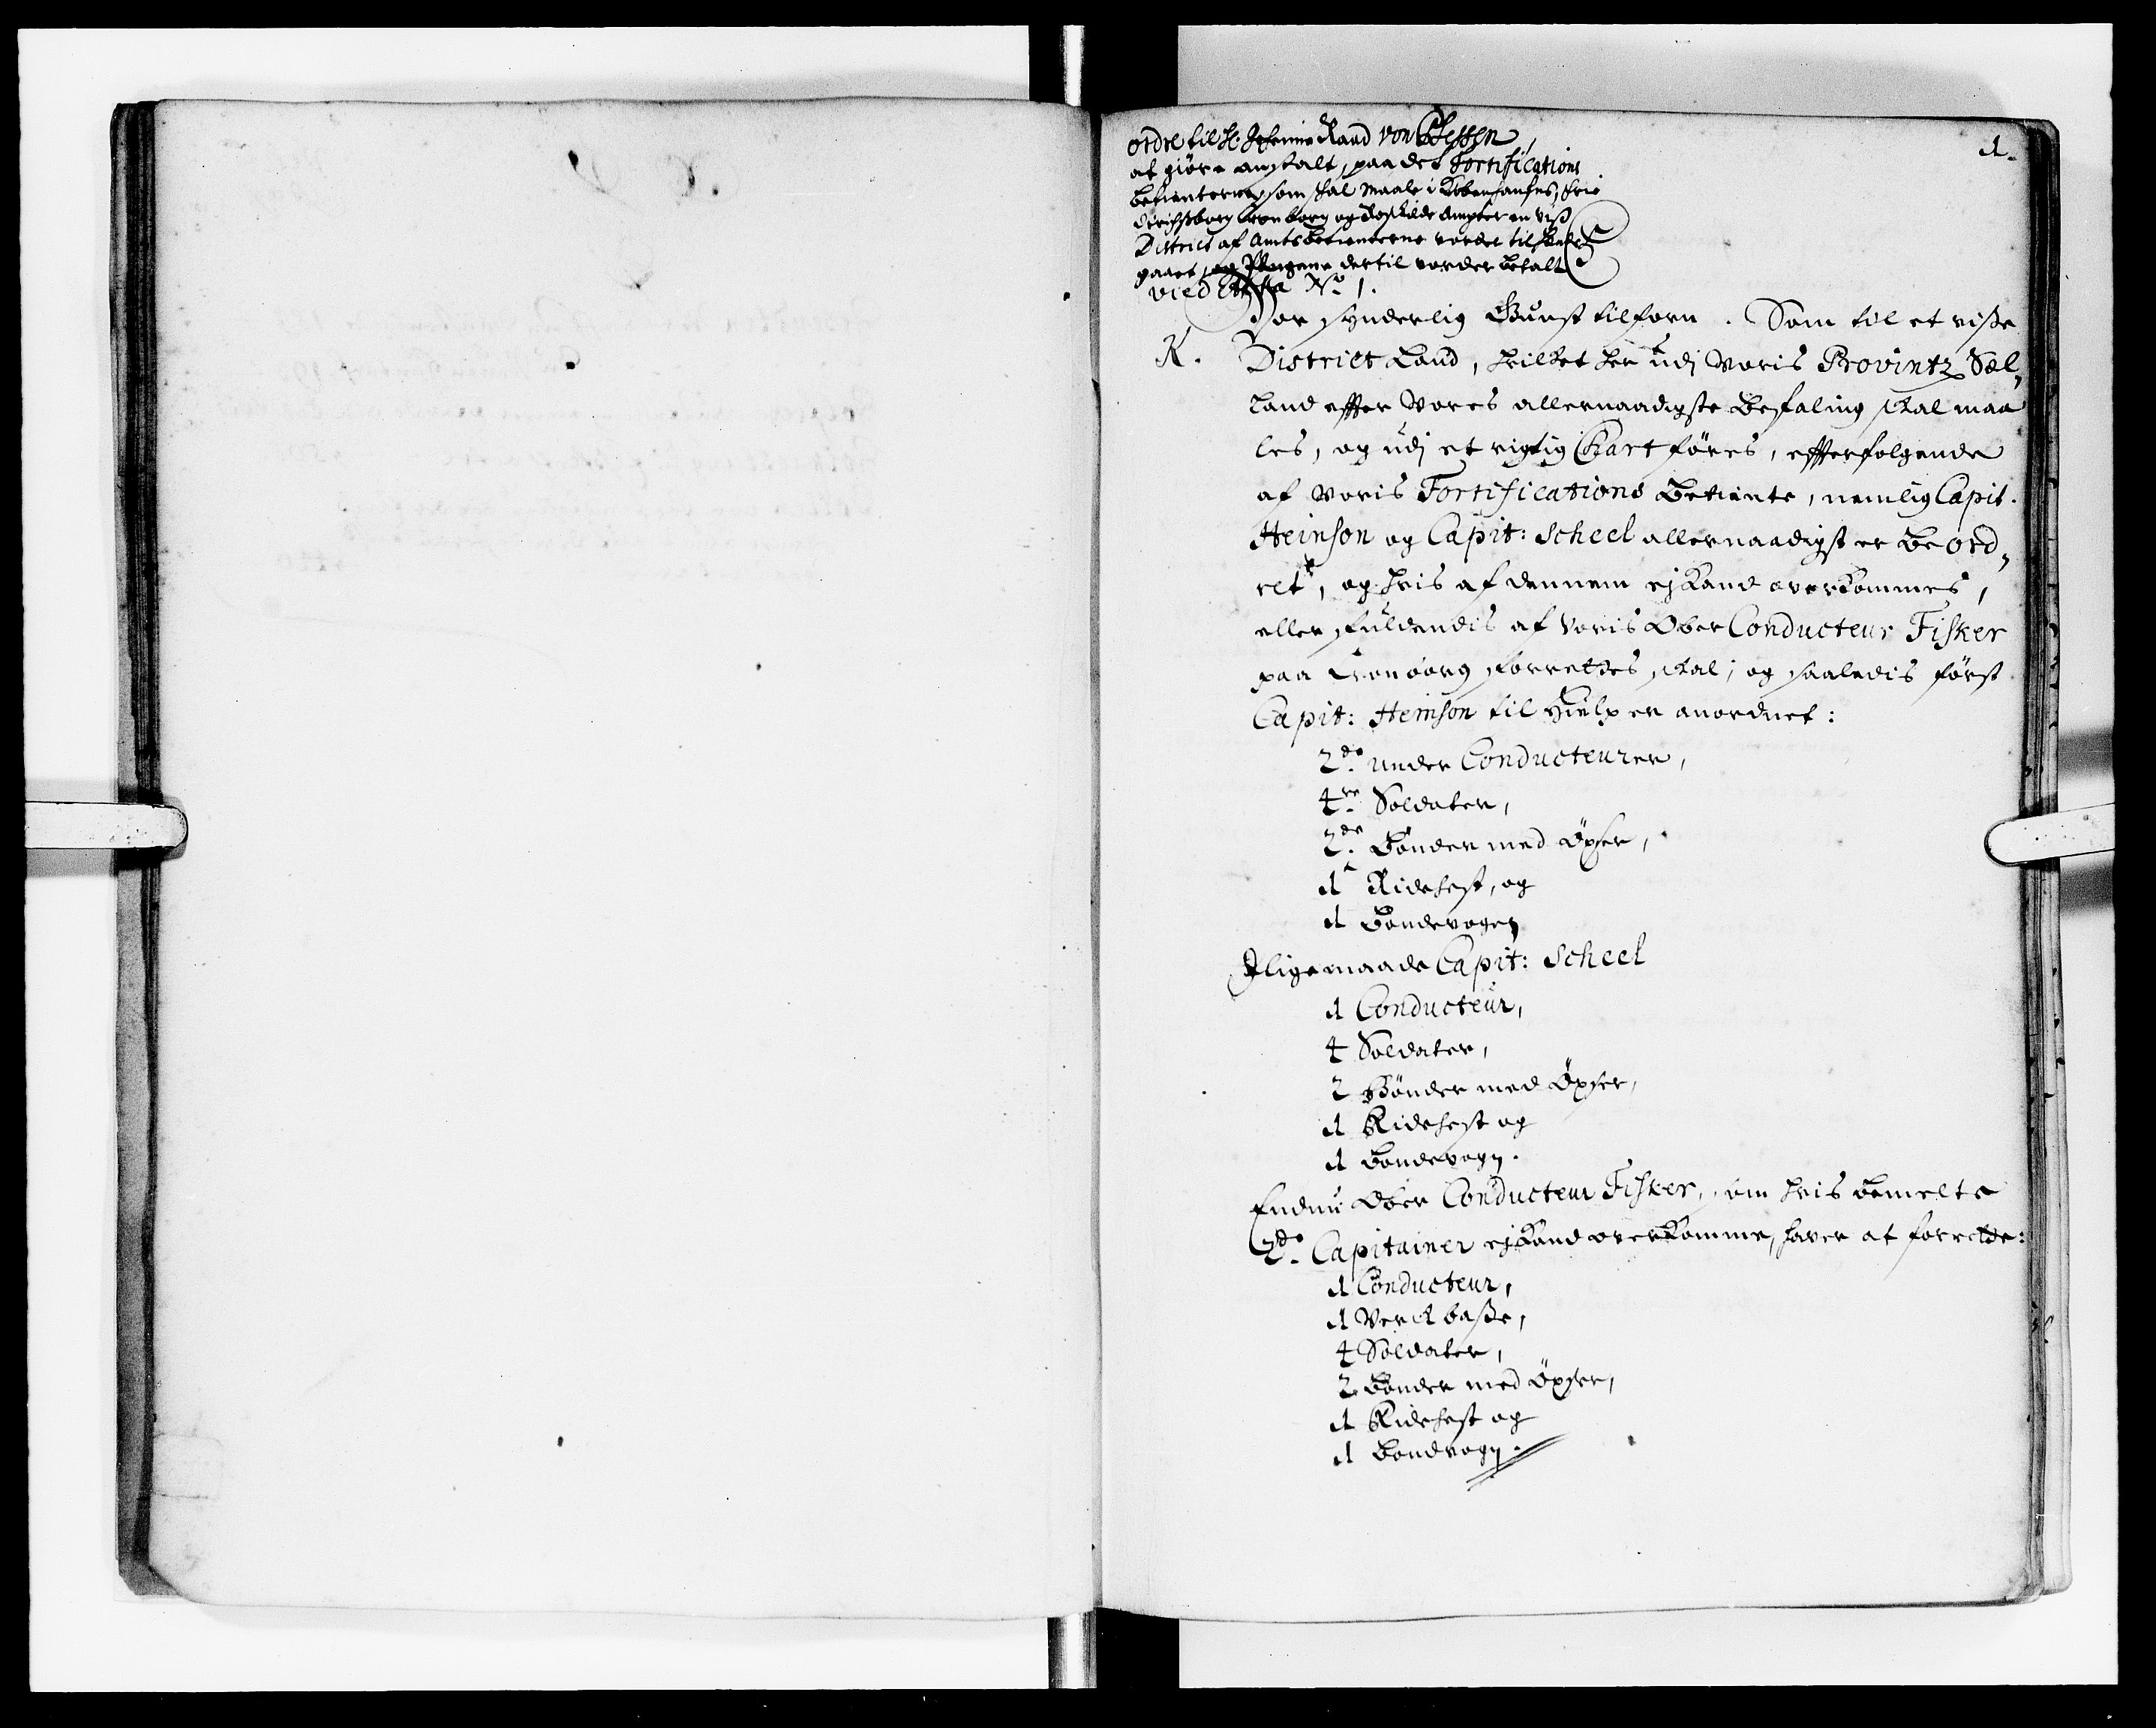 1.
ordre til H. Geheime Raad von Plessen,
at giøre anstalt, paa det Fortifications
betienterne, som skal maale i Kiøbenhafns, Frie
derichsborg Cronborg og Roskilde Ampter en viss
District af Amtsbetienterne vorder tilhaande
gaaet, og Pengene dertil vorder betalt
vied No 1.
Vor synderlig Gunst tilforn. Som til et visse
K. District Land, hvilket her udj Voris Provintz Sæl-
land effter Vores allernaadigste befaling skal maa
les, og udj et rigtig Kart føres, effterfølgende
af Voris Fortifications betiente, nemlig Capit.
Heinson og Capit: Scheel allernaadigst er beord-
ret, og hvis af dennem ej kand overkommes,
eller fuldendis af Voris Ober Conducteur Fisker
paa Cronborg forrettes skal; og saaledis først
Capit: Heinson til Hielp er anordnet:
2de. under Conducteurer,
4re. Soldater,
2de. Bønder med Øxser,
1 Ridehest, og
1 Bondevogn
Jligemaade Capit: Scheel
1 Conducteur,
4 Soldater,
2 Bønder med Øxser,
1 Ridehest og
1 Bondevogn.
Endnu Ober Conducteur Fisker, om hvis bemelte
2de. Capitainer ej kand overkomme, haver at forrette:
1 Conducteur,
1 Verckbasse,
4 Soldater,
2 Bønder med Øxser,
1 Ridehest og
1 Bondvogn.